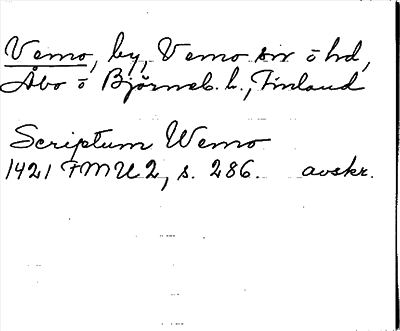 Vemo, by, Vemo sn o hd,
Åbo o Björneb. l., Finland
Scriptum Wemo
1421 FMU 2, s. 286. avskr.